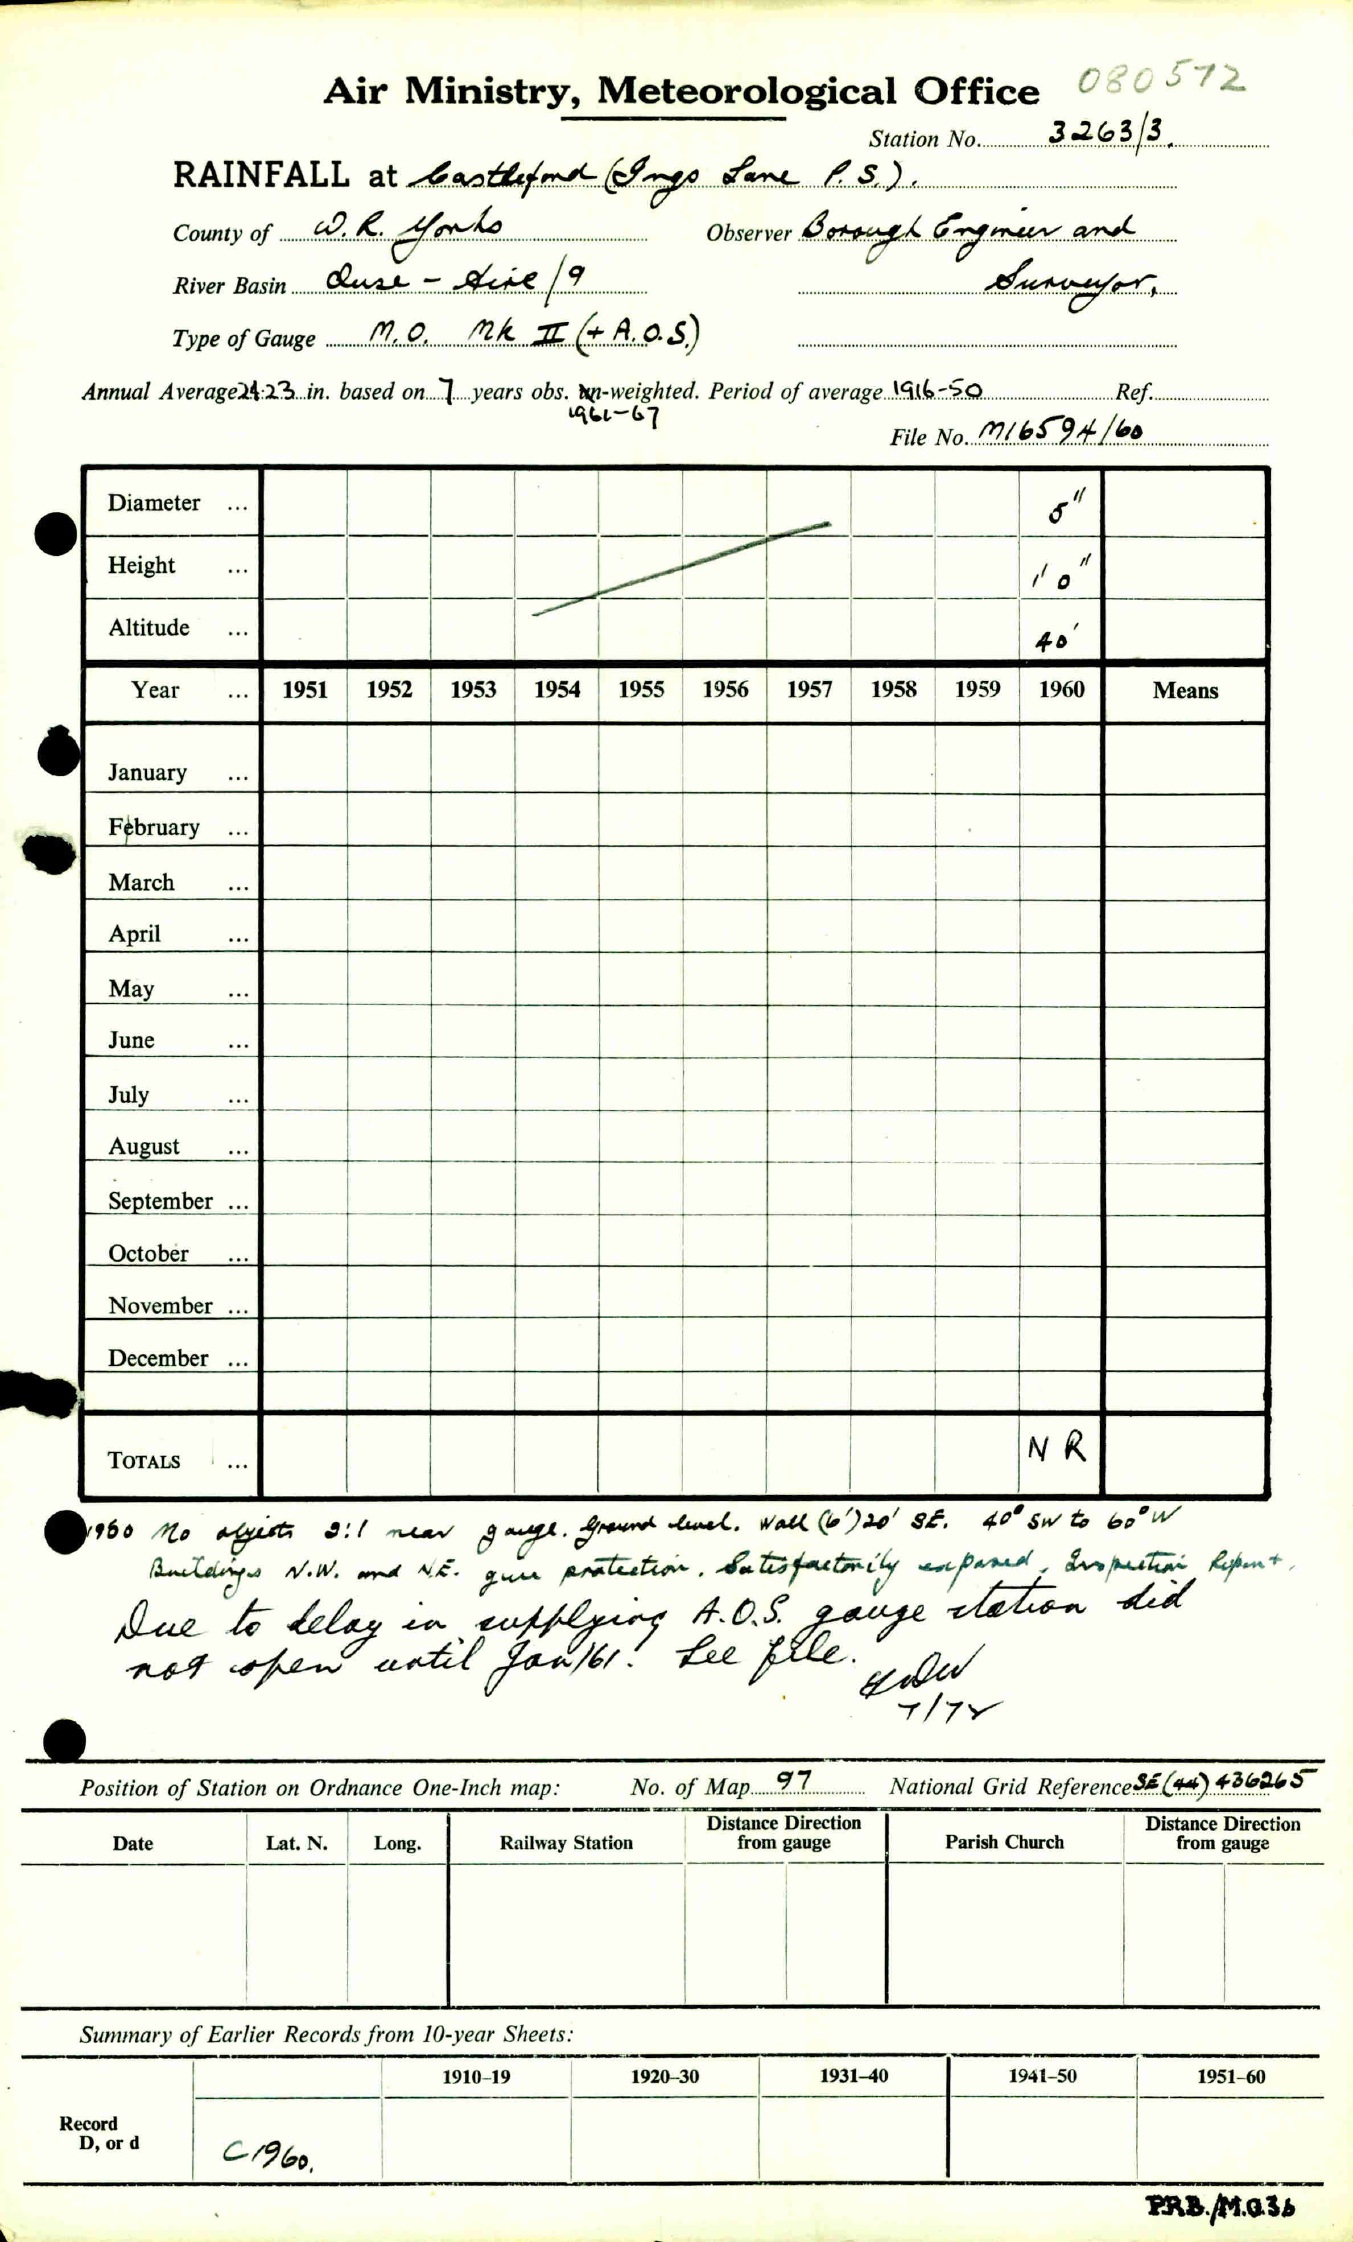 Air Ministry, Meteorological Office 080572
Station No. 3263/3.
RAINFALL at Castleford (Ings Lane P.S.).
County of W.R. Yorks Observer Borough Engineer and
River Basin Ouse - Aire/9 Surveyor,
Type of Gauge M.O. Mk II (+ A.O.S.)
Annual Average 24.23 in. based on 7 years obs. un-weighted. Period of average 1916-50 Ref.
1961-67
File No. M16594/60
Diameter ... 5"
Height ... 1' 0"
Altitude ... 40'
Year ... 1951 1952 1953 1954 1955 1956 1957 1958 1959 1960 Means
January ...
February ...
March ...
April ...
May ...
June ...
July ...
August ...
September ...
October ...
November ...
December ...
TOTALS ... N R
1960 No objects 2:1 near gauge. Ground level. Wall (6') 20' SE. 40° SW to 60° W
Buildings N.W. and N.E. give protection. Satisfactorily exposed. Inspection Report.
Due to delay in supplying A.O.S. gauge station did
not open until Jan/61. See file.
7/72
Position of Station on Ordnance One-Inch map: No. of Map 97 National Grid Reference SE (44) 436265
Date Lat. N. Long. Railway Station Distance Direction from gauge Parish Church Distance Direction from gauge
Summary of Earlier Records from 10-year Sheets:
1910–19 1920–30 1931–40 1941–50 1951–60
Record
D, or d
C1960.
P.R.B./M.O.36